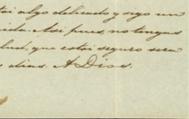 algo delicado y sigo un
Asi pues no tengas
que estoi seguro sera
dias. A Dios.